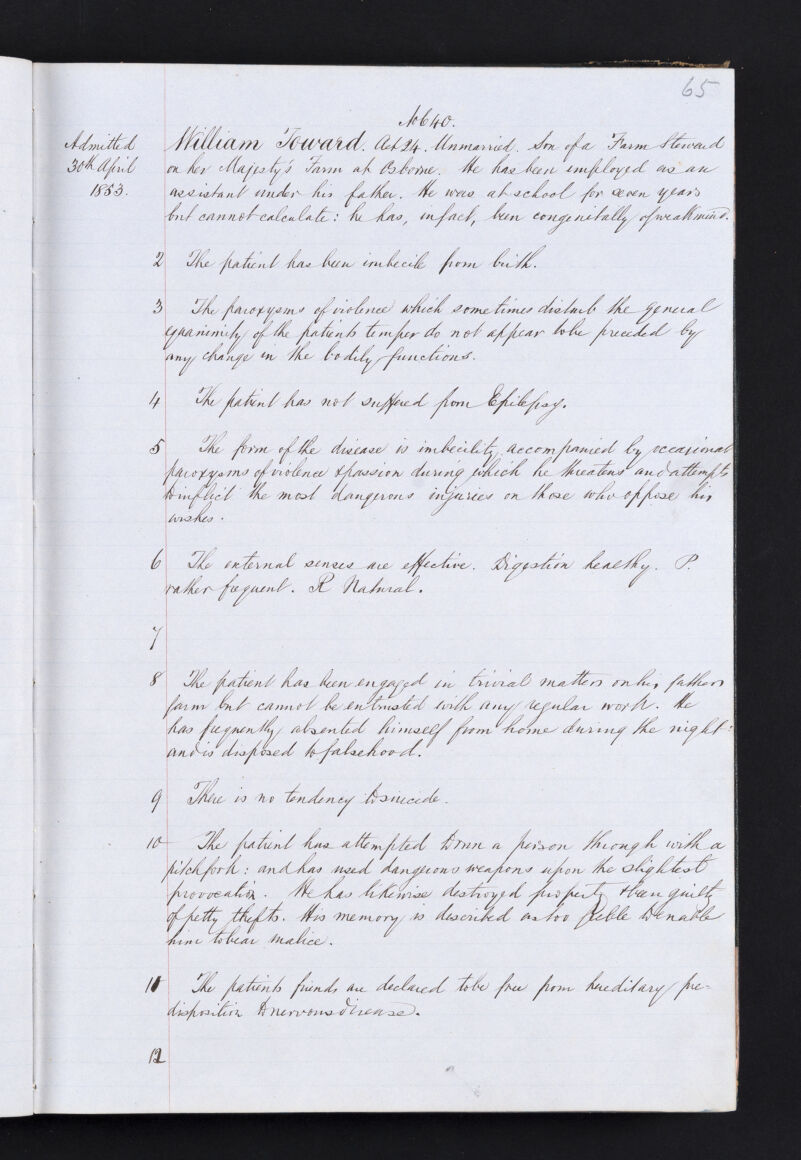 65
No 640.
Admitted
30th April
1853.
William Toward. Aet 24. Unmarried. Son of a Farm Steward
on her Majesty's Farm at Osborne. He has been employed as an
assistant under his father. He was at school for seven years
but cannot calculate: he has, in fact, been congenitally of weak mind.
2 The patient has been imbecile from birth.
3 The paroxysms of violence which sometimes disturb the general
equanimity of the patients temper do not appear to be preceded by
any change in the bodily functions.
4 The patient has not suffered from Epilepsy.
5 The form of the disease is imbecility accompanied by occasional
paroxysms of violence & passion during which he threatens and attempts
to inflict the most dangerous injuries on those who oppose his
wishes.
6 The external senses are effective. Digestion healthy. P.
rather frequent. R Natural.
7
8 The patient has been engaged in trivial matters on his fathers
farm but cannot be entrusted with any regular work. He
has frequently absented himself from home during the night:
and is disposed to falsehood.
9 There is no tendency to suicide.
10 The patient has attempted to run a person through with a
pitchfork: and has used dangerous weapons upon the slightest
provocation. He has likewise destroyed property & been guilty
of petty thefts. His memory is described as too feeble to enable
him to bear malice.
11 The patients friends are declared to be free from hereditary pre=
disposition to nervous disease.
12